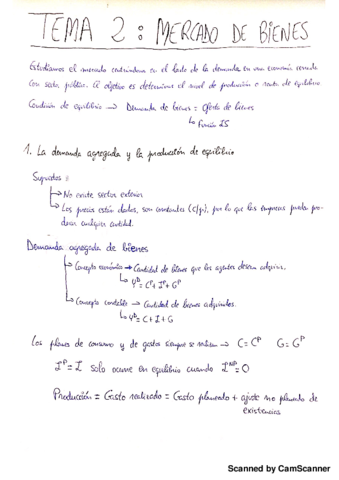 TEMA 2: MERCADO DE BIENES
Estudiamos el mercado centrándonos en el lado de la demanda en una economía cerrada
con sector público. El objetivo es determinar el nivel de producción o renta de equilibrio
Condición de equilibrio → Demanda de bienes = Oferta de bienes
↳ Función IS
1. La demanda agregada y la producción de equilibrio
Supuestos:
→ No existe sector exterior
↳ Los precios están dados, son constantes (c/p), por lo que las empresas pueden pro-
ducir cualquier cantidad.
Demanda agregada de bienes
→ Concepto económico → Cantidad de bienes que los agentes desean adquirir.
↳ Yᴰ = Cᴾ + Iᴾ + Gᴾ
→ Concepto contable → Cantidad de bienes adquiridos.
↳ Yᴰ = C + I + G
Los planes de consumo y de gastos siempre se realizan → C = Cᴾ G = Gᴾ
Iᴾ = I solo ocurre en equilibrio cuando Iᴺᴾ = 0
Producción = Gasto realizado = Gasto planeado + ajuste no planeado de
existencias
Scanned by CamScanner